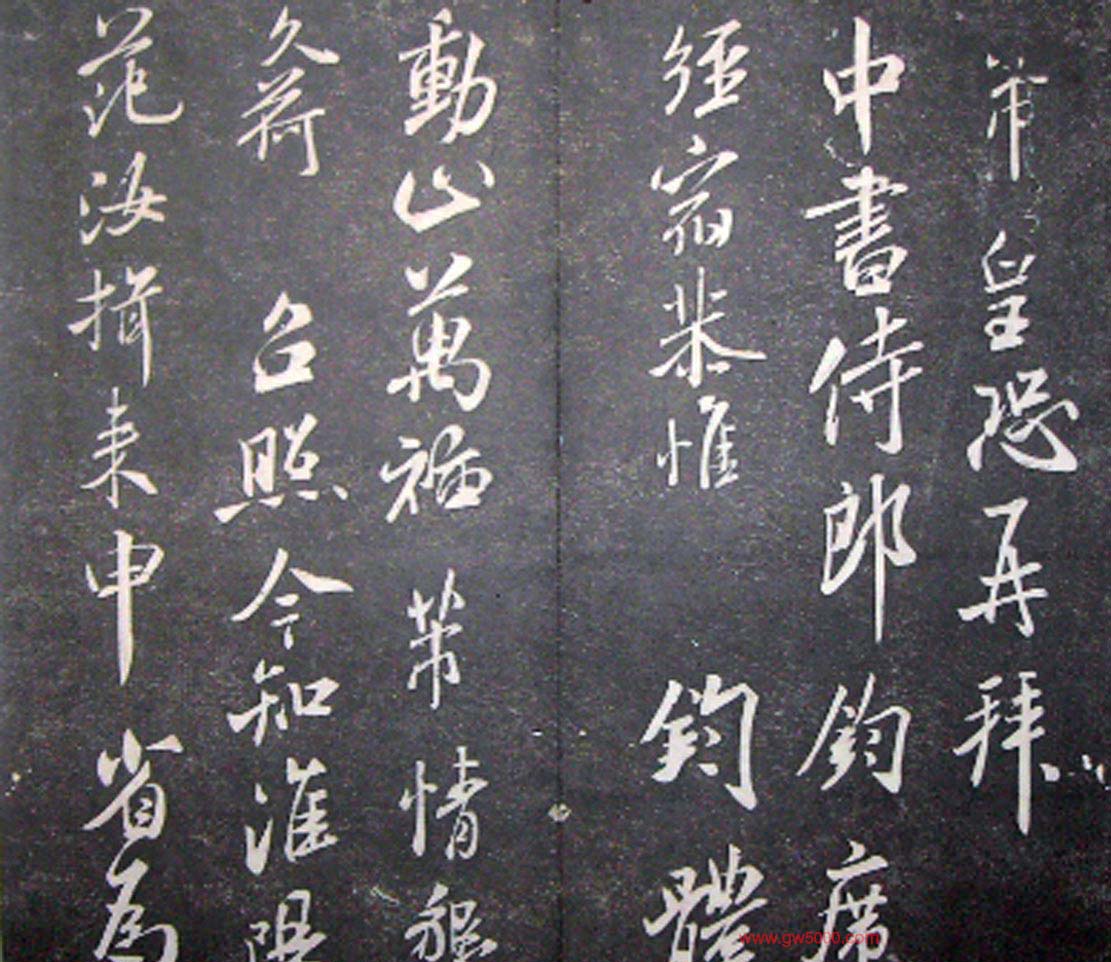 芾皇恐再拜
中書侍郎鈞席
經宿恭惟 鈞體
動止萬福 芾情懇
久荷 台照今知淮陽
范汝揖来申省為
www.gw5000.com